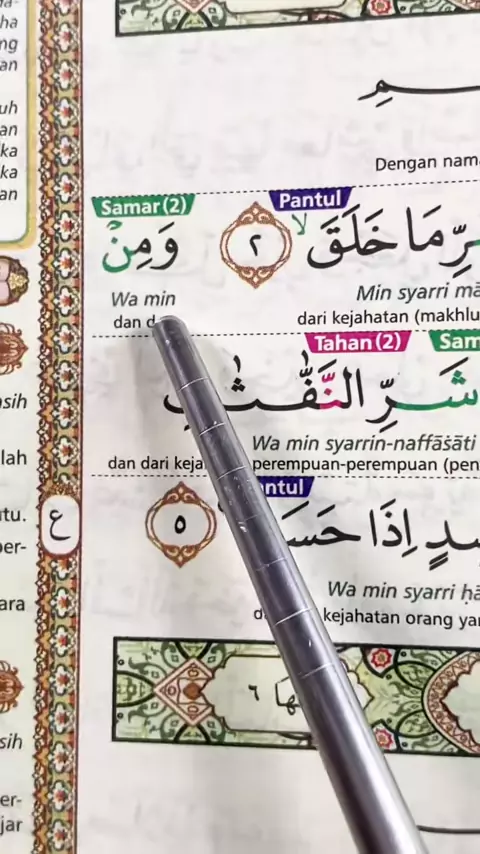 ha
ng
an
uh
an
ka
ka
an
ـم
Dengan nam
Samar (2) Pantul
ـرِّ مَا خَلَقَ ۙ ٢ وَمِنْ
Wa min Min syarri mā
dan d dari kejahatan (makhlu
Tahan (2) Sam
شَرِّ النَّفّٰثٰ
Wa min syarrin-naffāṡāti
dan dari keja perempuan-perempuan (pen
ntul
ـدٍ اِذَا حَسَـ ٥
Wa min syarri ḥā
kejahatan orang ya
ع
٦
sih
lah
tu.
er-
ara
sih
er-
jar